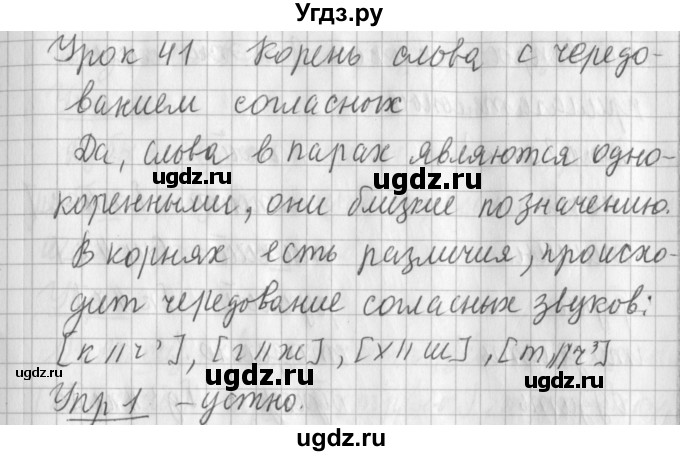 Угдз.ру
Урок 41 Корень слова с чередо-
ванием согласных
Да, слова в парах являются одно-
ugdz.ru ugdz.ru
коренными, они близкие по значению.
В корнях есть различия, происхо-
дит чередование согласных звуков:
ugdz.ru
[к//ч'], [г//ж], [х//ш], [т//ч']
ugdz.ru ugdz.ru ugdz.ru
Упр 1 - устно.
ugdz.ru